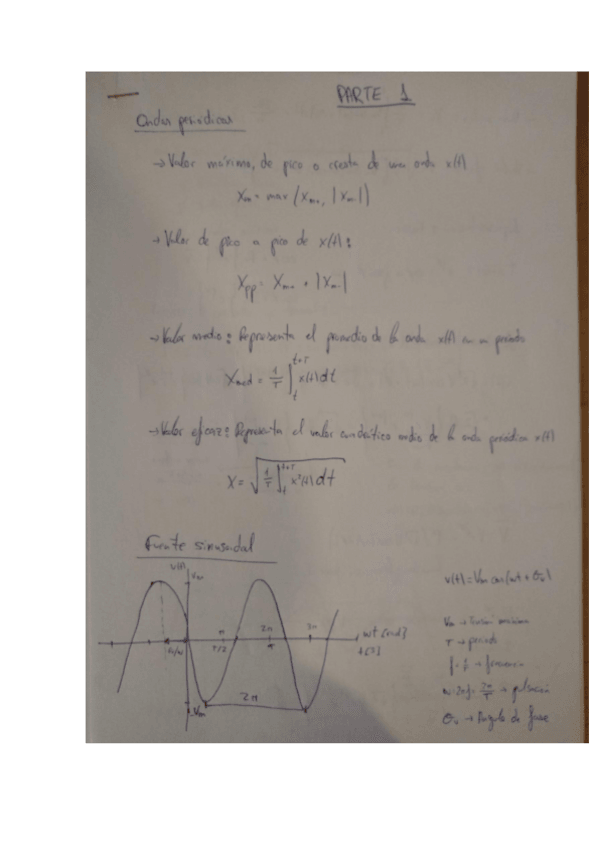 PARTE 1
Ondas periódicas
→ Valor máximo, de pico o cresta de una onda x(t)
→ Valor de pico a pico de x(t):
→ Valor medio: Representa el promedio de la onda x(t) en un periodo
X_med = 1/T ∫_t^{t+T} x(t) dt
→ Valor eficaz: Representa el valor cuadrático medio de la onda periódica x(t)
X = √(1/T ∫_t^{t+T} x²(t) dt)
Fuente sinusoidal
v(t)
Vm
π 2π 3π
T/2 T
wt [rad]
t [s]
2π
-Vm
v(t) = Vm cos(wt + θv)
Vm → Tensión máxima
T → periodo
→ frecuencia
w = 2πf = 2π/T → pulsación
θv → Ángulo de fase